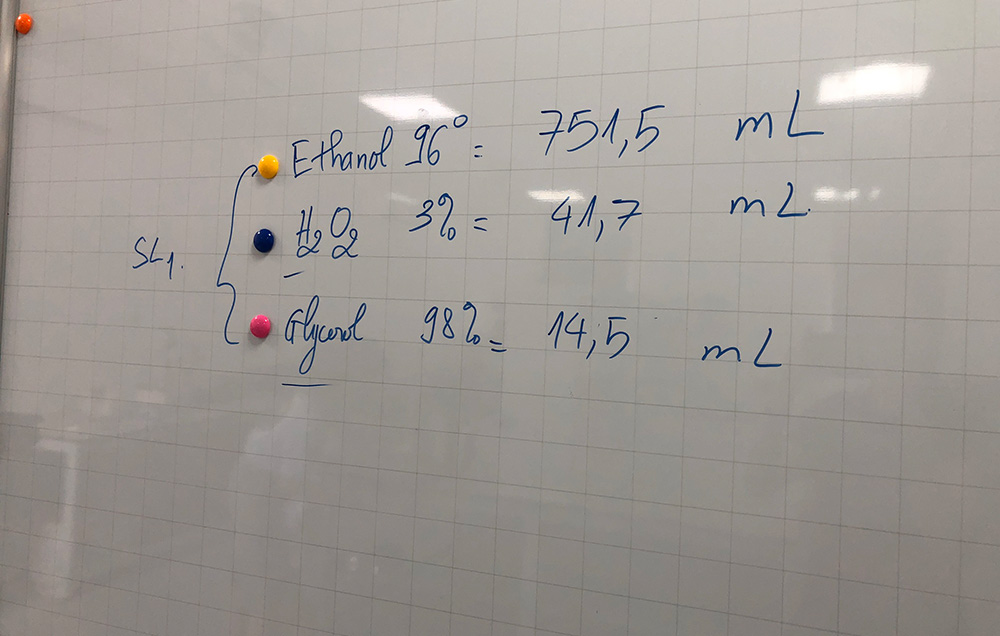 Ethanol 96° = 751,5 mL
H₂O₂ 3% = 41,7 mL
SL1.
Glycerol 98% = 14,5 mL